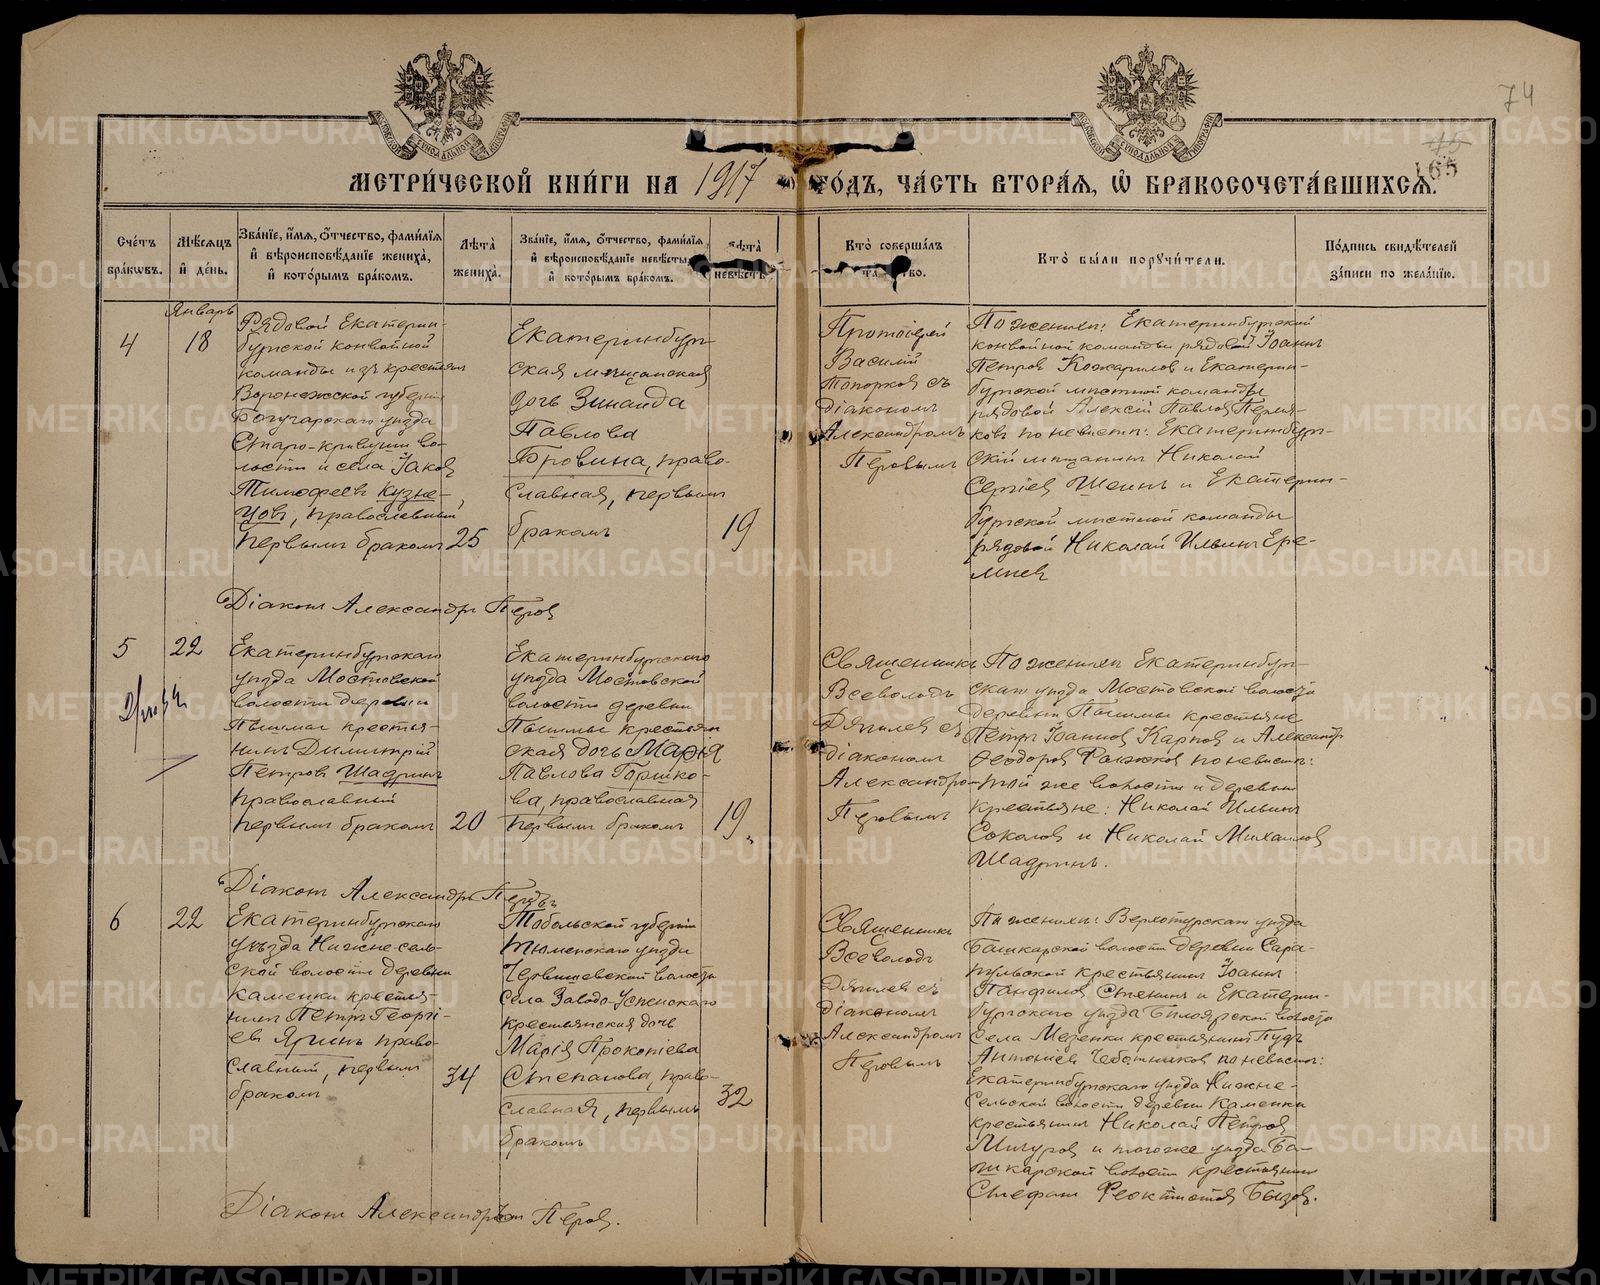 74
165
МЕТРИЧЕСКОЙ КНИГИ НА 1917 ГОДЪ, ЧАСТЬ ВТОРАЯ, Ѡ БРАКОСОЧЕТАВШИХСЯ.
Счетъ браковъ.
Мѣсяцъ и день.
Званіе, имя, отчество, фамилія и вѣроисповѣданіе жениха, и которымъ бракомъ.
Лѣта жениха.
Званіе, имя, отчество, фамилія и вѣроисповѣданіе невѣсты, и которымъ бракомъ.
Лѣта невѣсты.
Кто совершалъ
Кто были поручители.
Подпись свидѣтелей записи по желанію.
Январь
4
18
Рядовой Екатерин-
бургской конвойной
команды изъ крестьян
Воронежской губерніи
Богучарскаго уѣзда
Старо-Кривуши во-
лости и села Іаковъ
Тимофеевъ Кузне-
цовъ, православный
первымъ бракомъ
25
Екатеринбург-
ская мѣщанская
дочь Зинаида
Павлова
Бровина, право-
славная, первымъ
бракомъ
19
Протоіерей
Василій
Топорковъ съ
діакономъ
Александромъ
Перовымъ
По женихѣ: Екатеринбургской
конвойной команды рядовой Іоаннъ
Петровъ Кожариловъ и Екатерин-
бургской мѣстной команды
рядовой Алексій Павловъ Перми-
ковъ по невѣстѣ: Екатеринбург-
скій мѣщанинъ Николай
Сергіевъ Шеинъ и Екатерин-
бургской мѣстной команды
рядовой Николай Ильинъ Ере-
мѣевъ
Діаконъ Александръ Перовъ
5
22
Екатеринбургскаго
уѣзда Мостовской
волости деревни
Пышмы крестья-
нинъ Димитрій
Петровъ Шадринъ
православный
первымъ бракомъ
20
Екатеринбургскаго
уѣзда Мостовской
волости деревни
Пышмы крестьян
ская дочь Марья
Павлова Горшко-
ва, православная
первымъ бракомъ
19
Священникъ
Всеволодъ
Дягилевъ съ
діакономъ
Александро-
Перовымъ
По женихѣ Екатеринбург-
скаго уѣзда Мостовской волости
деревни Пышмы крестьяне
Петръ Іоанновъ Карповъ и Александръ
Ѳеодоровъ по невѣстѣ:
той же волости и деревни
крестьяне: Николай Ильинъ
Соколовъ и Николай Михаиловъ
Шадринъ.
Діаконъ Александръ Перовъ
6
22
Екатеринбургскаго
уѣзда Нижне-сель-
ской волости деревни
Каменки крестья-
нинъ Петръ Георгі-
евъ Яринъ право-
славный, первымъ
бракомъ
34
Тобольской губерніи
Тюменскаго уѣзда
Червишевской волости
села Заводо-Успенскаго
крестьянская дочь
Марія Прокопіева
Степанова, право-
славная, первымъ
бракомъ
32
Священникъ
Всеволодъ
Дягилевъ съ
діакономъ
Александромъ
Перовымъ
По женихѣ: Верхотурскаго уѣзда
Башкарской волости деревни Сара-
пульской крестьянинъ Іоаннъ
Панфиловъ Стенинъ и Екатерин-
бургскаго уѣзда Бѣлоярской волости
села Мезенки крестьянинъ Пудъ
Антоніевъ Чеботниковъ по невѣстѣ:
Екатеринбургскаго уѣзда Нижне-
Сельской волости деревни Каменки
крестьянинъ Николай Петровъ
Мичуровъ и того же уѣзда Ба-
шкарской волости крестьянинъ
Стефанъ Феоктистовъ Бызовъ.
Діаконъ Александръ Перовъ.
METRIKI.GASO-URAL.RU